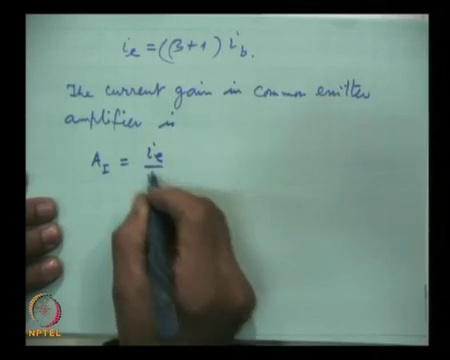 i_e = (β+1) i_b.
The current gain in common emitter
amplifier is
A_I = i_e
NPTEL